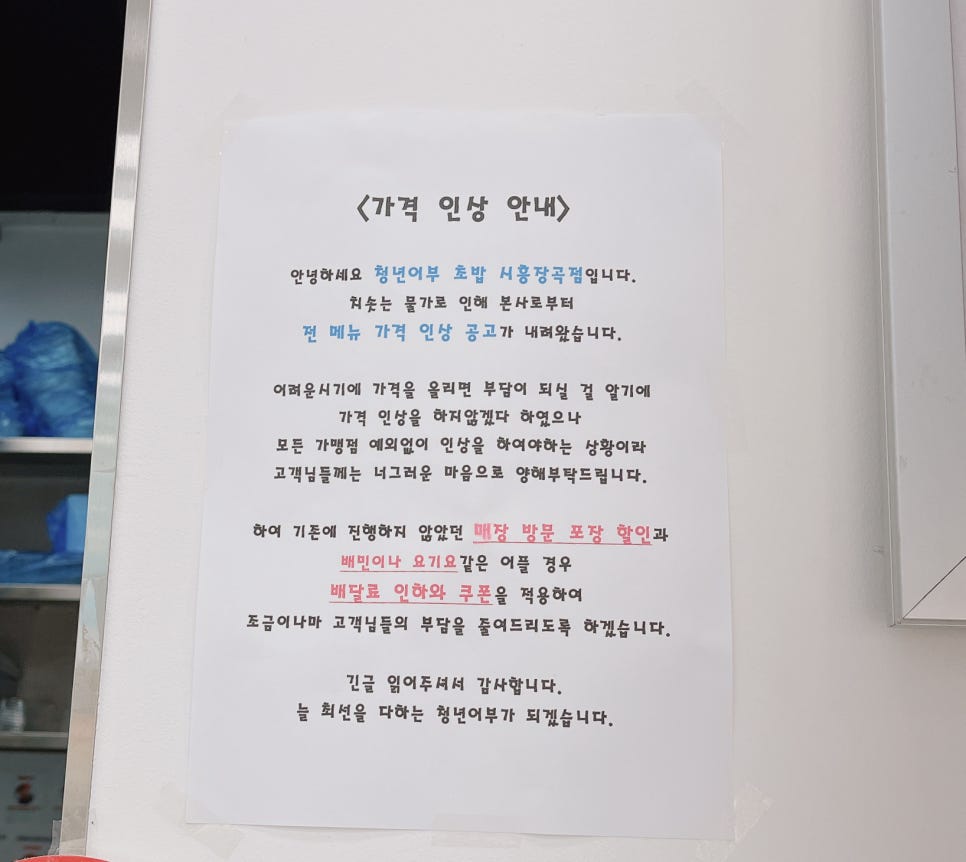 <가격 인상 안내>
안녕하세요 청년어부 초밥 시흥장곡점입니다.
치솟는 물가로 인해 본사로부터
전 메뉴 가격 인상 공고가 내려왔습니다.
어려운시기에 가격을 올리면 부담이 되실 걸 알기에
가격 인상을 하지않겠다 하였으나
모든 가맹점 예외없이 인상을 하여야하는 상황이라
고객님들께는 너그러운 마음으로 양해부탁드립니다.
하여 기존에 진행하지 않았던 매장 방문 포장 할인과
배민이나 요기요같은 어플 경우
배달료 인하와 쿠폰을 적용하여
조금이나마 고객님들의 부담을 줄여드리도록 하겠습니다.
긴글 읽어주셔서 감사합니다.
늘 최선을 다하는 청년어부가 되겠습니다.